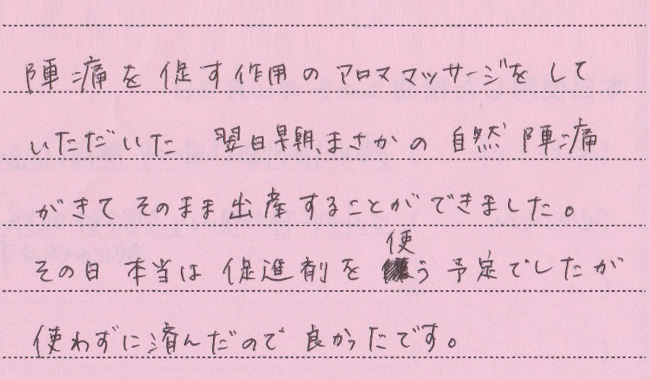 陣痛を促す作用のアロママッサージをして
いただいた 翌日早朝、まさかの自然陣痛
がきてそのまま出産することができました。
その日 本当は促進剤を使う予定でしたが
使わずに済んだので良かったです。